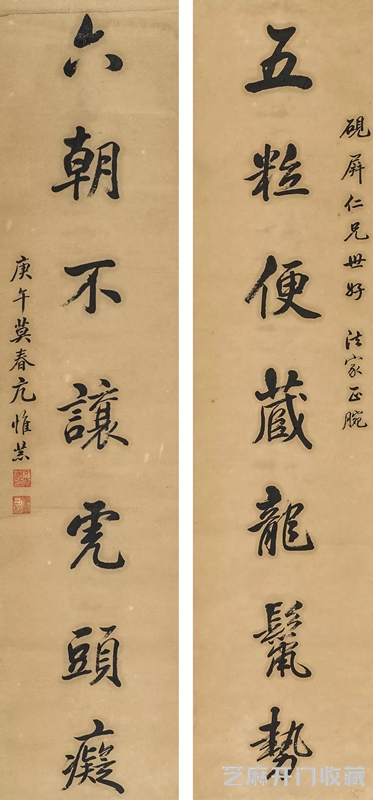 硯屏仁兄世好 法家正腕
五粒便藏龍鬣勢
六朝不讓虎頭癡
庚午莫春亢惟恭
芝麻开门收藏